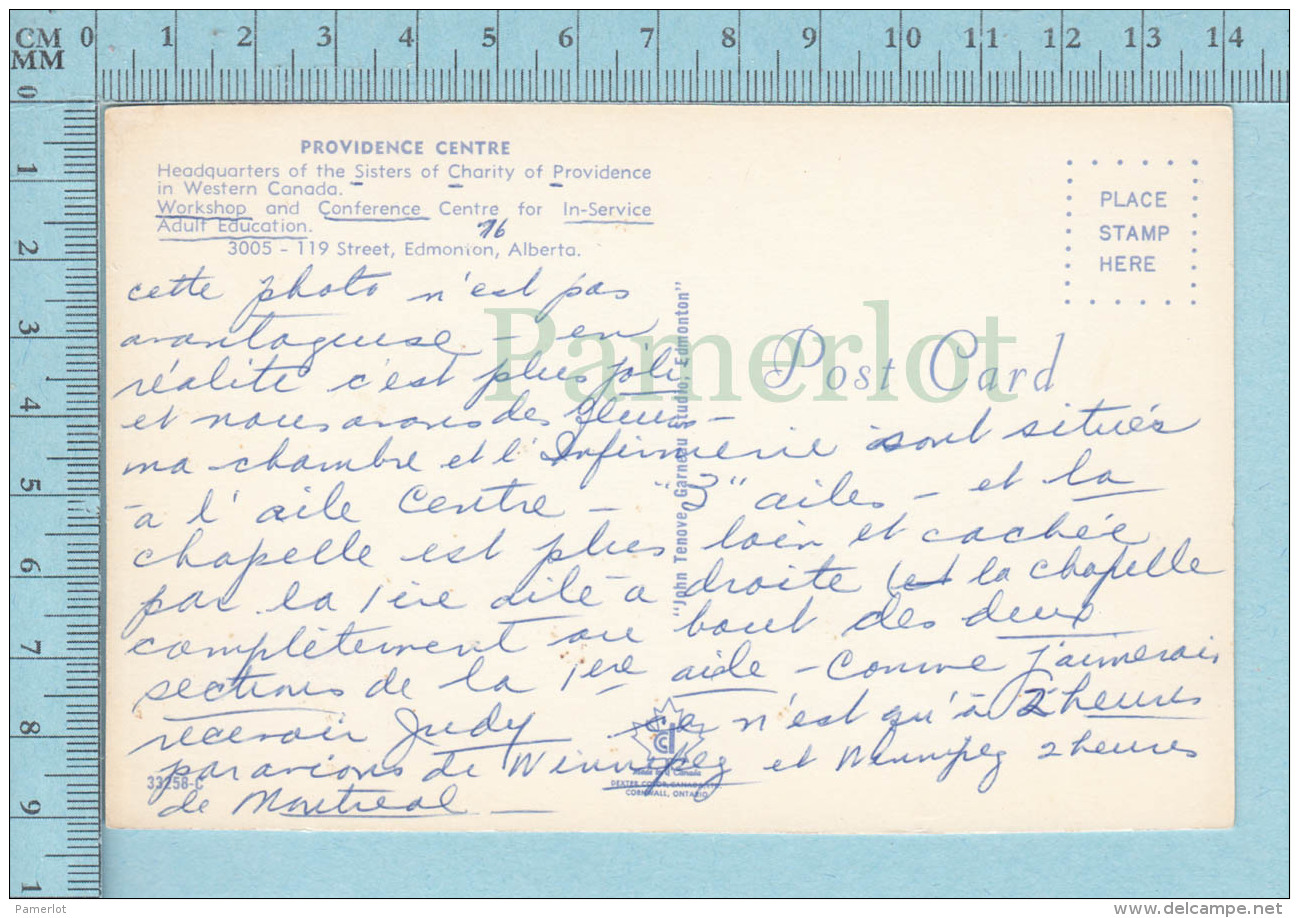 CM 0 1 2 3 4 5 6 7 8 9 10 11 12 13 14
MM
0 1 2 3 4 5 6 7 8 9 1
PROVIDENCE CENTRE
Headquarters of the Sisters of Charity of Providence
in Western Canada.
Workshop and Conference Centre for In-Service
Adult Education.
76
3005 - 119 Street, Edmonton, Alberta.
PLACE
STAMP
HERE
Post Card
Pamerlot
"John Tenove, Garneau Studio, Edmonton"
cette photo n'est pas
avantageuse - en
réalité c'est plus joli
et nous avons des fleurs -
ma chambre et l'Infirmerie sont situés
à l'aile Centre - "3" ailes - et la
chapelle est plus loin et cachée
par la 1ère aile à droite (et la chapelle
complètement au bout des deux
sections de la 1ère aide - Comme j'aimerais
recevoir Judy ce n'est qu'à 2 heures
par avions de Winnipeg et Winnipeg 2 heures
de Montreal -
33258-C
Made in Canada
DEXTER COLOR CANADA LTD.
CORNWALL, ONTARIO
Pamerlot
www.delcampe.net